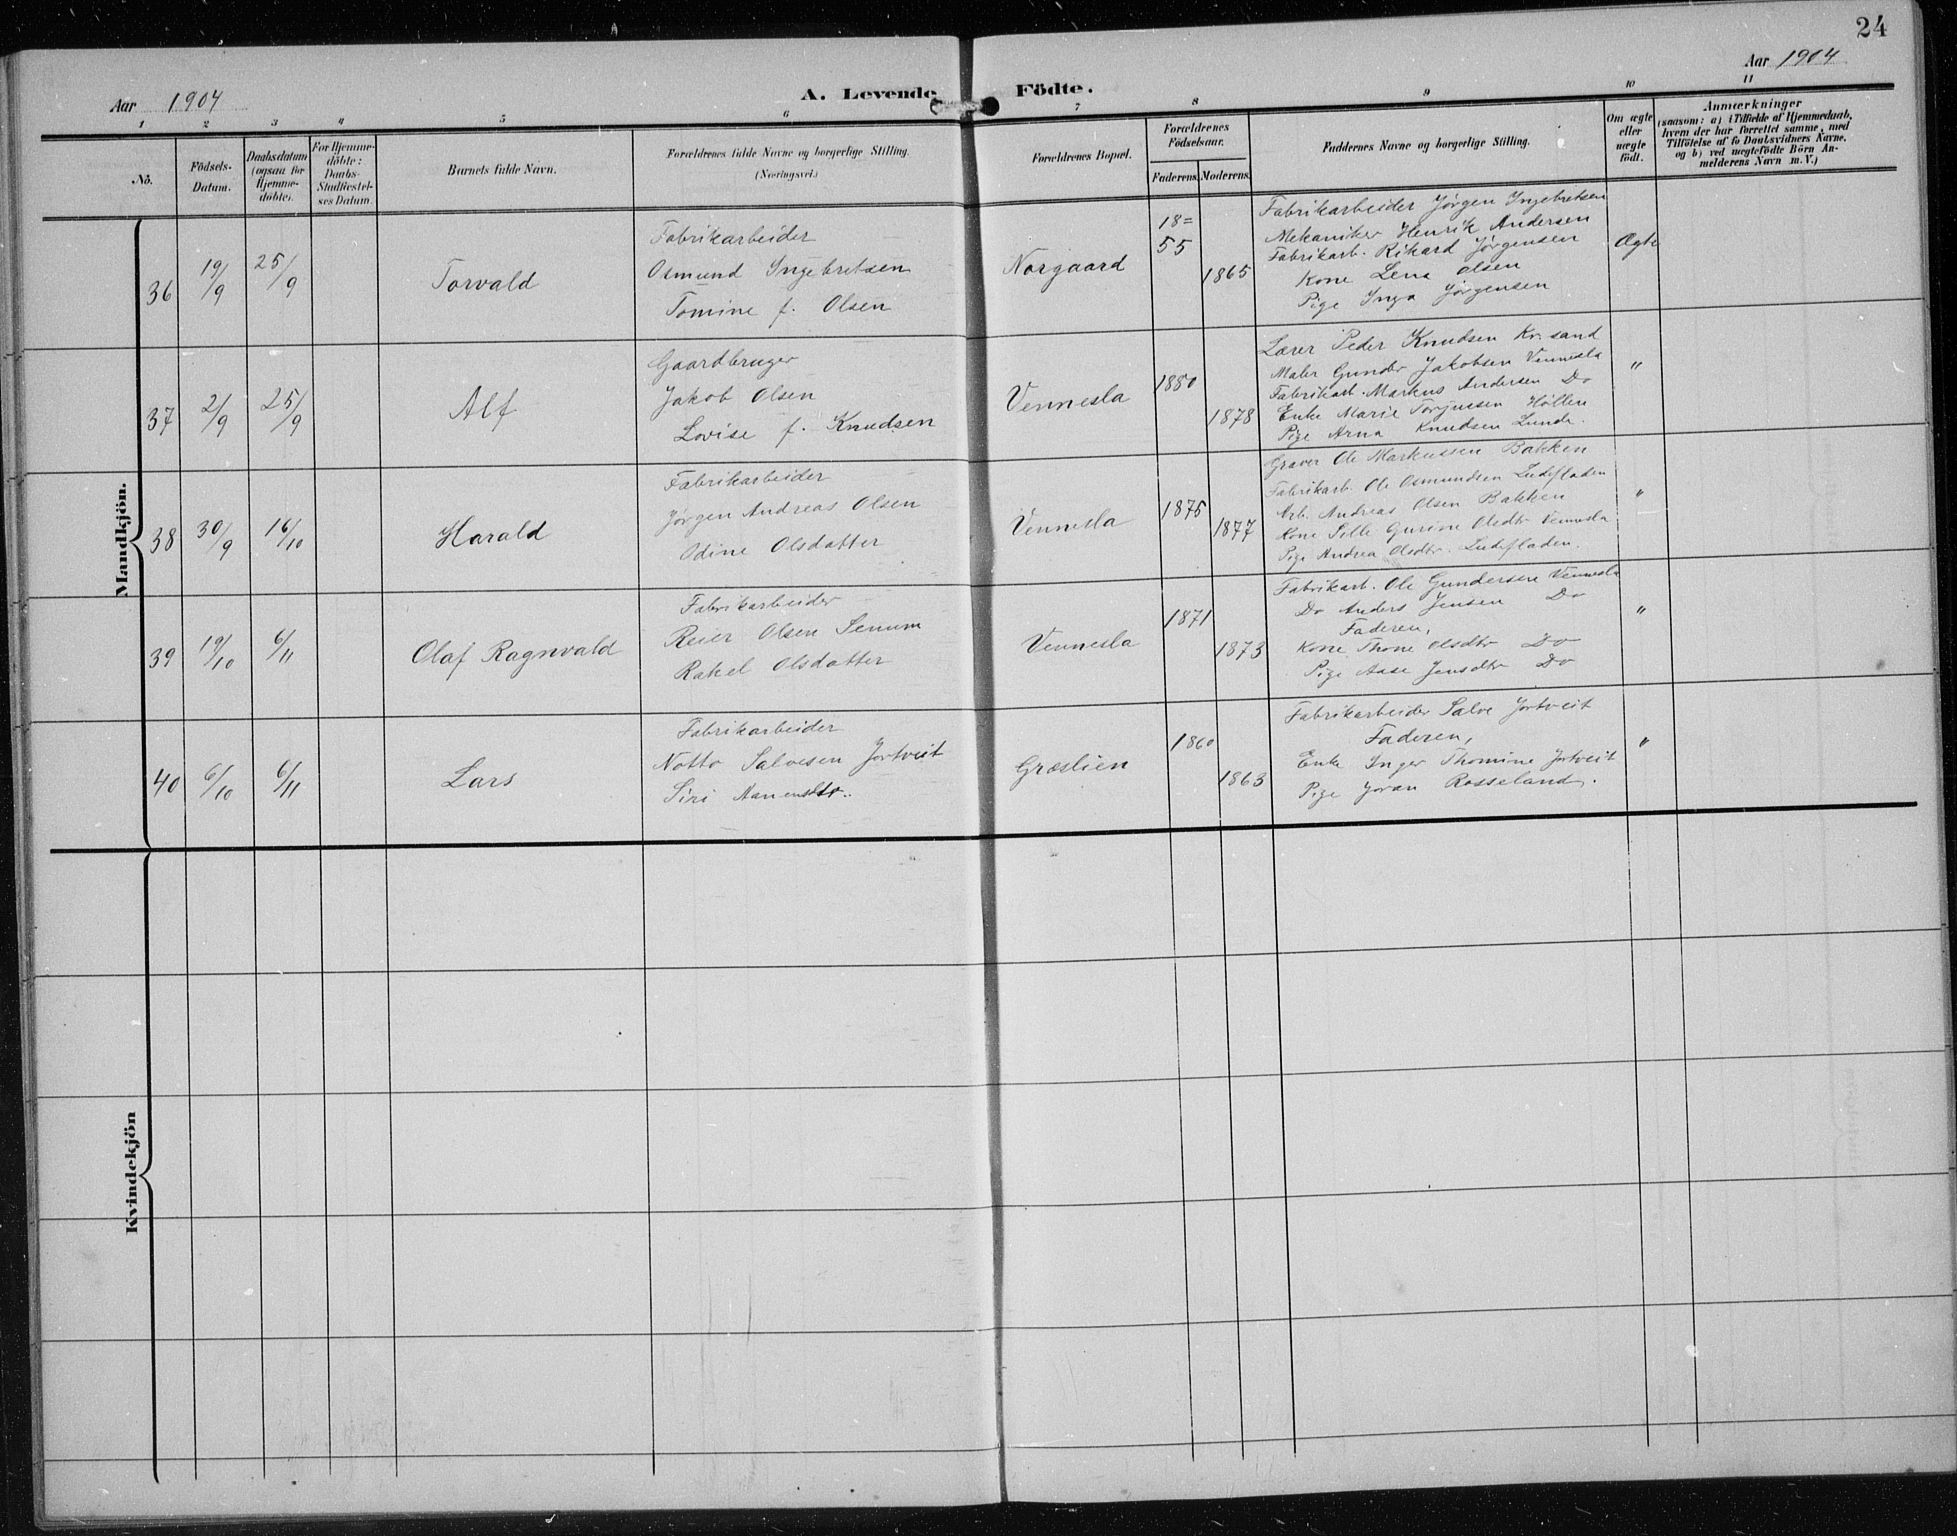 24
Aar 1904
Aar 1904
A. Levende Födte.
1 2 3 4 5 6 7 8 9 10 11
No.
Födsels-Datum.
Daabsdatum (ogsaa for Hjemme-döbte).
For Hjemme-döbte: Daabs-Stadfæstel-ses Datum.
Barnets fulde Navn.
Forældrenes fulde Navne og borgerlige Stilling.
(Næringsvei.)
Forældrenes Bopæl.
Forældrenes Födselsaar.
Faderens. Moderens.
Faddernes Navne og borgerlige Stilling.
Om ægte eller uægte født.
Anmærkninger
(saasom: a) i Tilfælde af Hjemmedaab,
hvem der har forrettet samme, med
Tilföielse af to Daabsvidners Navne,
og b) ved uægtefödte Börn An-
melderens Navn m. V.)
Mandkjön.
36
19/9
25/9
Torvald
Fabrikarbeider
Osmund Ingebretsen
Tomine f. Olsen
Norgaard
18=
55
1865
Fabrikarbeider Jørgen Ingebretsen
Mekaniker Henrik Andersen
Fabrikarb. Rikard Jørgensen
Kone Lena Olsen
Pige Inga Jørgensen
Ægte
37
2/9
25/9
Alf
Gaardbruger
Jakob Olsen
Lovise f. Knudsen
Vennesla
1880
1878
Lærer Peder Knudsen Kr.sand
Maler Gunder Jakobsen Vennesla
Fabrikarb. Markus Andersen Do
Enke Marie Torjussen Høllen
Pige Arna Knudsen Lunde.
"
38
30/9
16/10
Harald
Fabrikarbeider
Jørgen Andreas Olsen
Odine Olsdatter
Vennesla
1875
1877
Graver Ole Markussen Bakken
Fabrikarb. Ole Osmundsen
Arb. Andreas Olsen Bakken
Kone Sille Gurine Olsdtr Vennesla
Pige Andrea Olsdtr.
"
39
19/10
6/11
Olaf Ragnvald
Fabrikarbeider
Reier Olsen Senum
Rakel Olsdatter
Vennesla
1871
1873
Fabrikarb. Ole Gundersen Vennesla
Do Anders Jensen Do
Faderen,
Kone Thone Olsdtr Do
Pige Aase Jensdtr Do
"
40
6/10
6/11
Lars
Fabrikarbeider
Notto Salvesen Jortveit
Siri Aanensdtr.
Græslien
1860
1863
Fabrikarbeider Salve Jortveit
Faderen,
Enke Inger Thomine Jortveit
Pige Joran Rosseland.
"
Kvindekjön